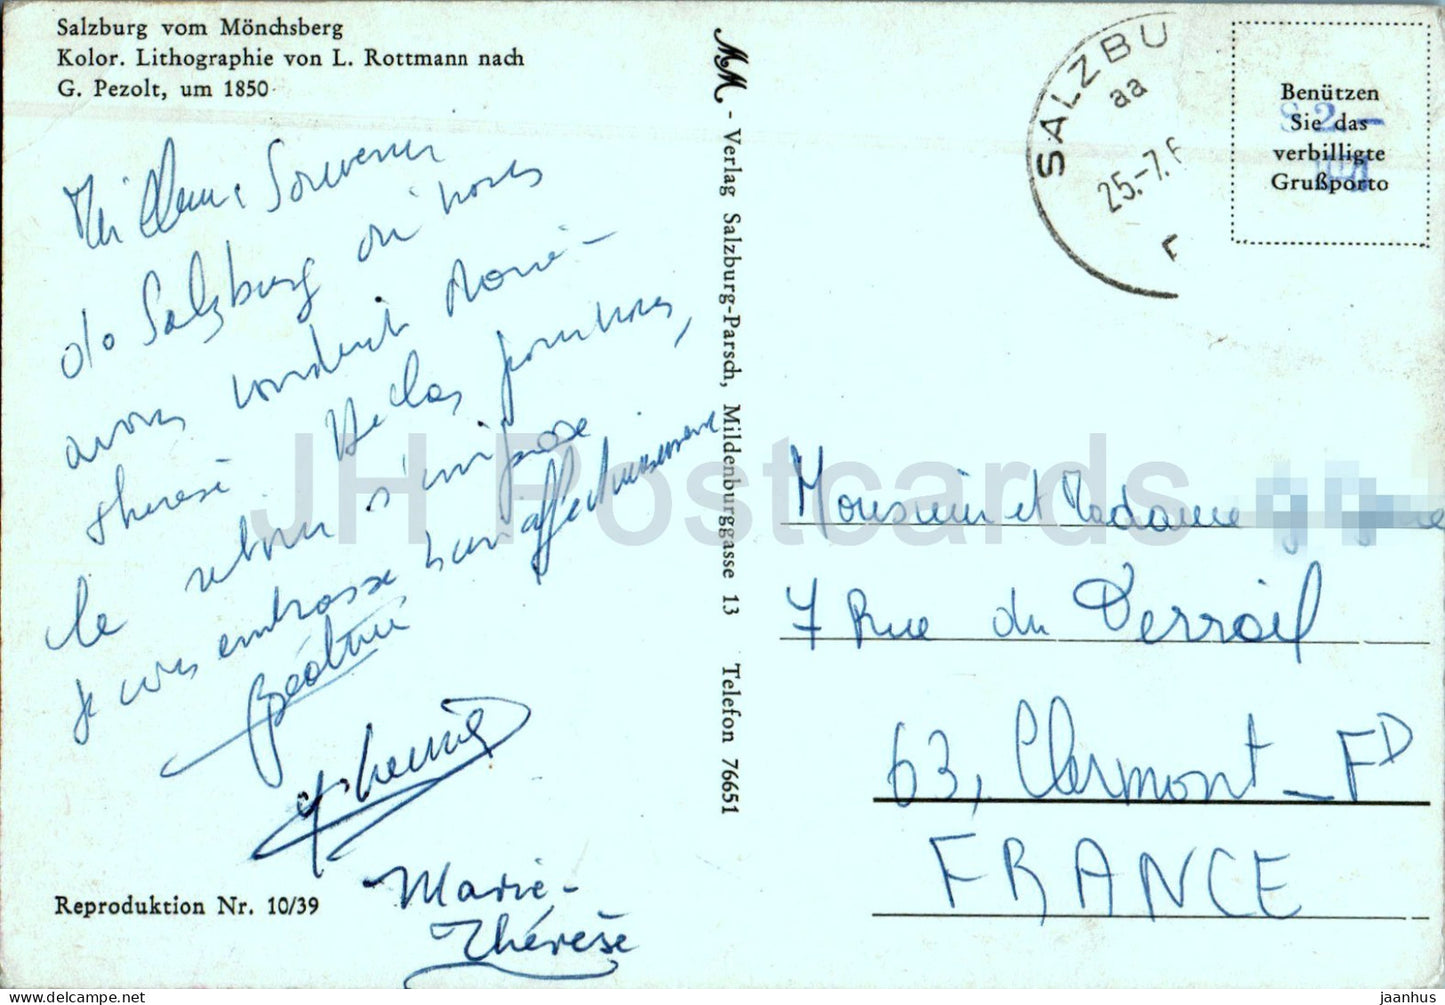 Salzburg vom Mönchsberg
Kolor. Lithographie von L. Rottmann nach
G. Pezolt, um 1850
Meilleurs Souvenirs
de Salzburg où nous
avons conduit Marie-
thérèse Hélas pour nous,
le retour s'impose
Je vous embrasse bien affectueusement
Béatrice
Marie-
Thérèse
Reproduktion Nr. 10/39
MM - Verlag Salzburg-Parsch, Mildenburggasse 13 Telefon 76651
SALZBU
aa
25.-7.6
Benützen
Sie das
verbilligte
Grußporto
S 2-
Monsieur et Madame
7 Rue du
63, Clermont-FD
FRANCE
JH Postcards
jaanhus
delcampe.net